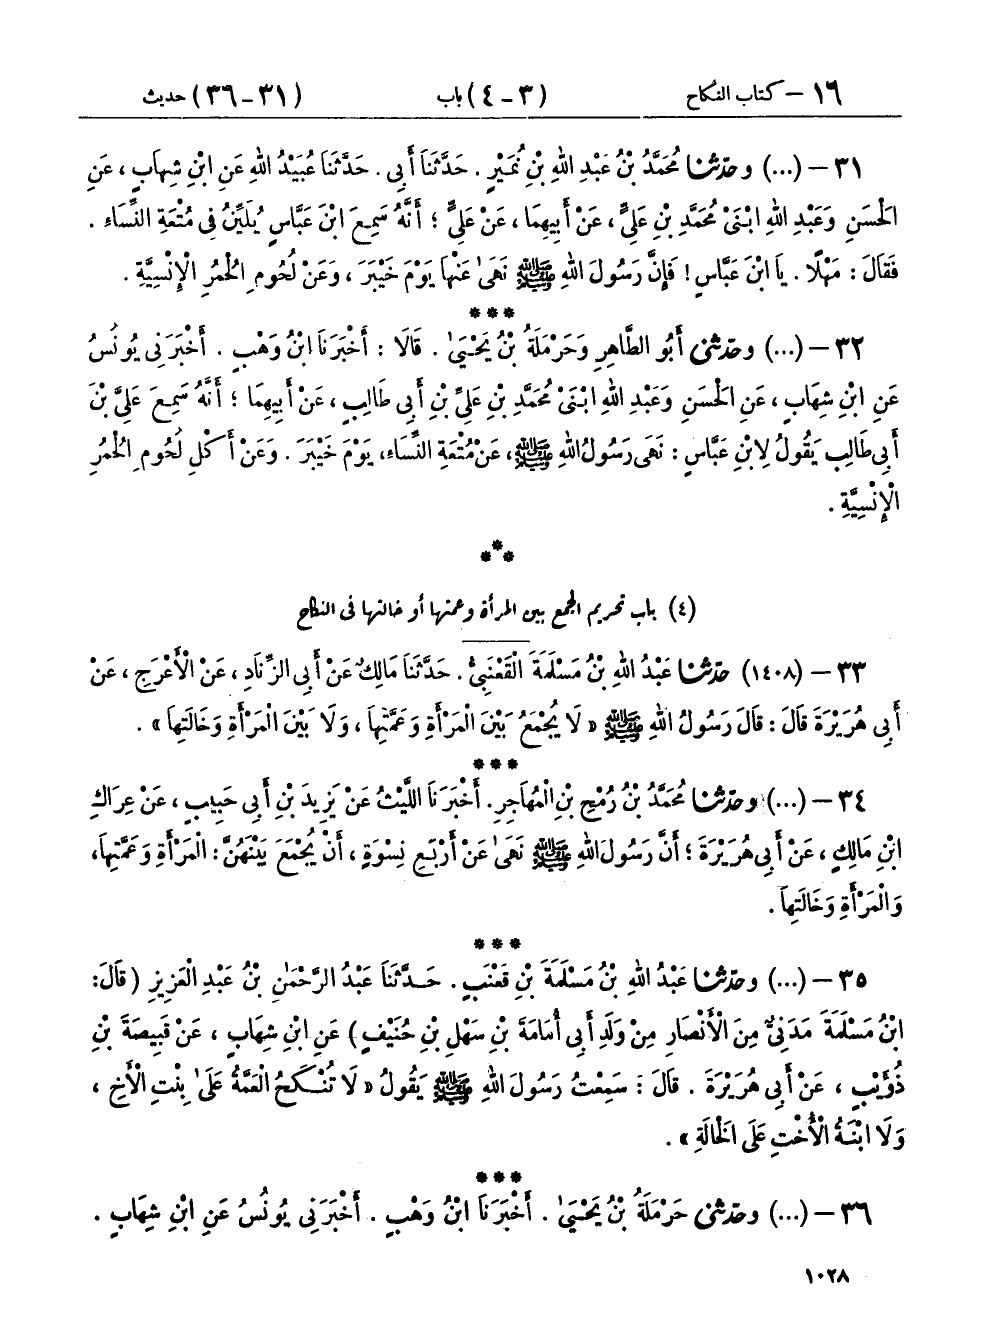 ١٦ – كتاب النكاح (٣ – ٤) باب (٣١ – ٣٦) حديث
٣١ – (...) وحدّثنا مُحَمَّدُ بْنُ عَبْدِ اللهِ بْنِ نُمَيْرٍ . حَدَّثَنَا أَبِى . حَدَّثَنَا عُبَيْدُ اللهِ عَنِ ابْنِ شِهَابٍ ، عَنِ
الْحَسَنِ وَعَبْدِ اللهِ ابْنَىْ مُحَمَّدِ بْنِ عَلِىٍّ ، عَنْ أَبِيهِمَا ، عَنْ عَلِىٍّ ؛ أَنَّهُ سَمِعَ ابْنَ عَبَّاسٍ يُلَيِّنُ فِى مُتْعَةِ النِّسَاءِ .
فَقَالَ : مَهْلًا . يَا ابْنَ عَبَّاسٍ ! فَإِنَّ رَسُولَ اللهِ ﷺ نَهَىٰ عَنْهَا يَوْمَ خَيْبَرَ ، وَعَنْ لُحُومِ الْحُمُرِ الْإِنْسِيَّةِ .
***
٣٢ – (...) وحدّثنى أَبُو الطَّاهِرِ وَحَرْمَلَةُ بْنُ يَحْيَىٰ . قَالَا : أَخْبَرَنَا ابْنُ وَهْبٍ . أَخْبَرَنِى يُونُسُ
عَنِ ابْنِ شِهَابٍ ، عَنِ الْحَسَنِ وَعَبْدِ اللهِ ابْنَىْ مُحَمَّدِ بْنِ عَلِىِّ بْنِ أَبِى طَالِبٍ ، عَنْ أَبِيهِمَا ؛ أَنَّهُ سَمِعَ عَلِىَّ بْنَ
أَبِى طَالِبٍ يَقُولُ لِابْنِ عَبَّاسٍ : نَهَى رَسُولُ اللهِ ﷺ ، عَنْ مُتْعَةِ النِّسَاءِ، يَوْمَ خَيْبَرَ . وَعَنْ أَكْلِ لُحُومِ الْحُمُرِ
الْإِنْسِيَّةِ .
***
(٤) باب تحريم الجمع بين المرأة وعمتها أو خالتها فى النكاح
٣٣ – (١٤٠٨) حدّثنا عَبْدُ اللهِ بْنُ مَسْلَمَةَ الْقَعْنَبِىُّ . حَدَّثَنَا مَالِكٌ عَنْ أَبِى الزِّنَادِ ، عَنْ الْأَعْرَجِ ، عَنْ
أَبِى هُرَيْرَةَ قَالَ : قَالَ رَسُولُ اللهِ ﷺ « لَا يُجْمَعُ بَيْنَ الْمَرْأَةِ وَعَمَّتِهَا ، وَلَا بَيْنَ الْمَرْأَةِ وَخَالَتِهَا » .
***
٣٤ – (...) وحدّثنا مُحَمَّدُ بْنُ رُمْحِ بْنِ الْمُهَاجِرِ . أَخْبَرَنَا اللَّيْثُ عَنْ يَزِيدَ بْنِ أَبِى حَبِيبٍ ، عَنْ عِرَاكِ
ابْنِ مَالِكٍ ، عَنْ أَبِى هُرَيْرَةَ ؛ أَنَّ رَسُولَ اللهِ ﷺ نَهَىٰ عَنْ أَرْبَعِ نِسْوَةٍ ، أَنْ يُجْمَعَ بَيْنَهُنَّ : الْمَرْأَةِ وَعَمَّتِهَا،
وَالْمَرْأَةِ وَخَالَتِهَا .
***
٣٥ – (...) وحدّثنا عَبْدُ اللهِ بْنُ مَسْلَمَةَ بْنِ قَعْنَبٍ . حَدَّثَنَا عَبْدُ الرَّحْمٰنِ بْنُ عَبْدِ الْعَزِيزِ ( قَالَ :
ابْنُ مَسْلَمَةَ مَدَنِىٌّ مِنَ الْأَنْصَارِ مِنْ وَلَدِ أَبِى أُمَامَةَ بْنِ سَهْلِ بْنِ حُنَيْفٍ ) عَنِ ابْنِ شِهَابٍ ، عَنْ قَبِيصَةَ بْنِ
ذُؤَيْبٍ ، عَنْ أَبِى هُرَيْرَةَ . قَالَ : سَمِعْتُ رَسُولَ اللهِ ﷺ يَقُولُ « لَا تُنْكَحُ الْعَمَّةُ عَلَىٰ بِنْتِ الْأَخِ ،
وَلَا ابْنَةُ الْأُخْتِ عَلَى الْخَالَةِ » .
***
٣٦ – (...) وحدّثنى حَرْمَلَةُ بْنُ يَحْيَىٰ . أَخْبَرَنَا ابْنُ وَهْبٍ . أَخْبَرَنِى يُونُسُ عَنِ ابْنِ شِهَابٍ .
١٠٢٨